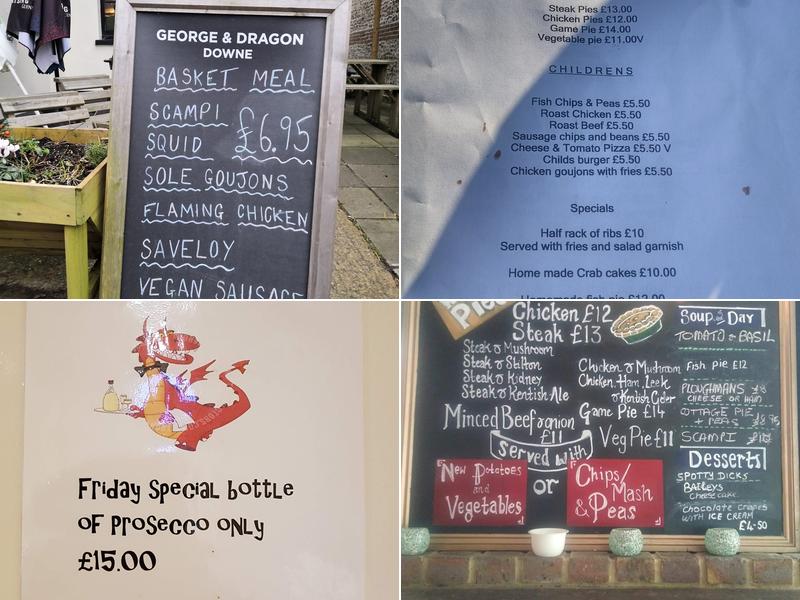 GEORGE & DRAGON
DOWNE
BASKET MEAL
SCAMPI
SQUID £6.95
SOLE GOUJONS
FLAMING CHICKEN
SAVELOY
VEGAN SAUSAGE
Steak Pies £13.00
Chicken Pies £12.00
Game Pie £14.00
Vegetable pie £11.00V
CHILDRENS
Fish Chips & Peas £5.50
Roast Chicken £5.50
Roast Beef £5.50
Sausage chips and beans £5.50
Cheese & Tomato Pizza £5.50 V
Childs burger £5.50
Chicken goujons with fries £5.50
Specials
Half rack of ribs £10
Served with fries and salad garnish
Home made Crab cakes £10.00
Homemade fish pie £12.00
Friday Special bottle
OF Prosecco ONLY
£15.00
Pies
Chicken £12
Steak £13
Steak & Mushroom
Steak & Stilton
Steak & Kidney
Steak & Kentish Ale
Chicken & Mushroom
Chicken, Ham, Leek
& Kentish Cider
Minced Beef & onion
£11
Game Pie £14
Veg Pie £11
Served with
New Potatoes
and
Vegetables
or
Chips/
Mash
& Peas
Soup of the Day
TOMATO & BASIL
Fish pie £12
PLOUGHMANS £8
CHEESE OR HAM
COTTAGE PIE
+ PEAS £8.95
SCAMPI
Desserts
SPOTTY DICKS
BAILEYS
Cheesecake
chocolate crepes
WITH ICE CREAM
£4.50